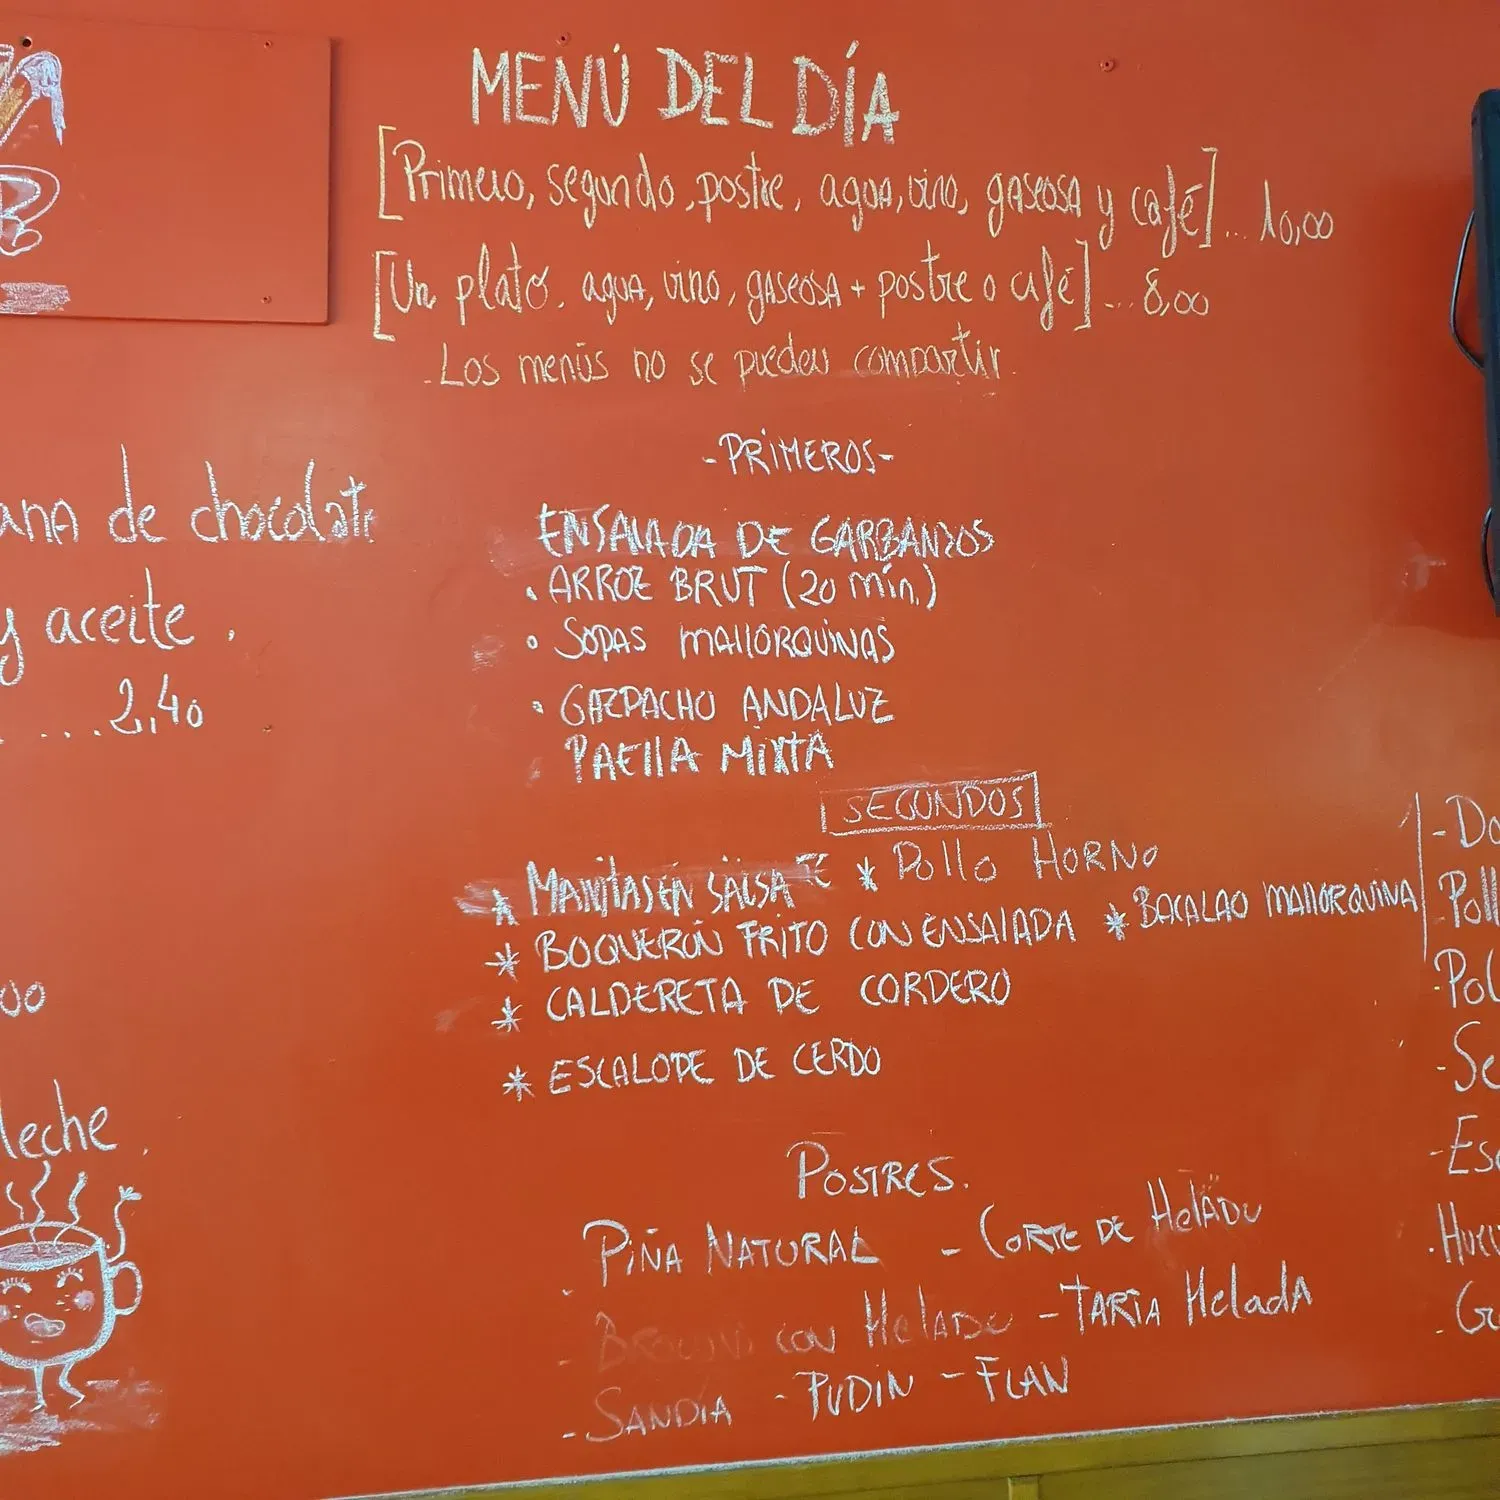 MENÚ DEL DÍA
[Primero, segundo, postre, agua, vino, gaseosa y café]... 10,00
[Un plato, agua, vino, gaseosa + postre o café]... 8,00
- Los menús no se pueden compartir.
-PRIMEROS-
ENSALADA DE GARBANZOS
• ARROZ BRUT (20 min.)
• SOPAS MALLORQUINAS
• GAZPACHO ANDALUZ
PAELLA MIXTA
SEGUNDOS
* MANITAS EN SALSA * POLLO HORNO
* BOQUERÓN FRITO CON ENSALADA * BACALAO MALLORQUINA
* CALDERETA DE CORDERO
* ESCALOPE DE CERDO
POSTRES.
- PIÑA NATURAL - CORTE DE HELADO
- BROWNI CON HELADO - TARTA HELADA
- SANDÍA - PUDIN - FLAN
de chocolate
y aceite.
....2,40
leche.
- Poll